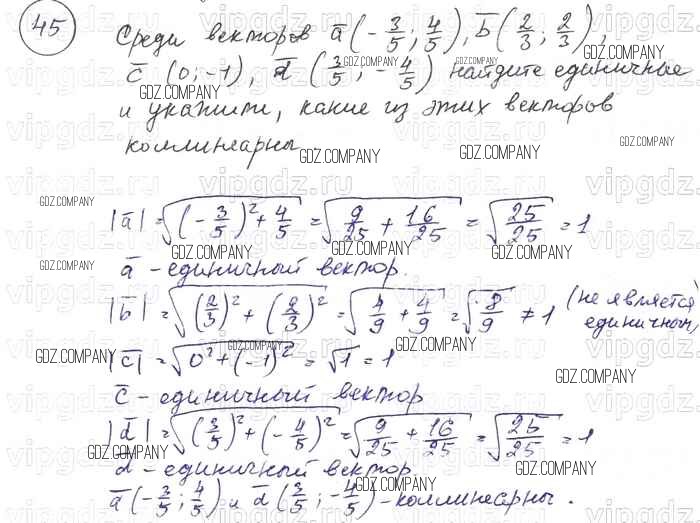 45
Среди векторов a̅(-3/5; 4/5), b̅(2/3; 2/3),
c̅ (0; -1), d̅ (3/5; -4/5) найдите единичные
и укажите, какие из этих векторов
коллинеарны.
|a̅| = √((-3/5)² + 4/5) = √(9/25 + 16/25) = √(25/25) = 1
a̅ - единичный вектор.
|b̅| = √((2/3)² + (2/3)²) = √(4/9 + 4/9) = √(8/9) ≠ 1 (не является
единичным)
|c̅| = √(0² + (-1)²) = √1 = 1
c̅ - единичный вектор
|d̅| = √((3/5)² + (-4/5)²) = √(9/25 + 16/25) = √(25/25) = 1
d - единичный вектор
a̅(-3/5; 4/5) и d̅(3/5; -4/5) - коллинеарны.
GDZ.COMPANY
vipgdz.ru